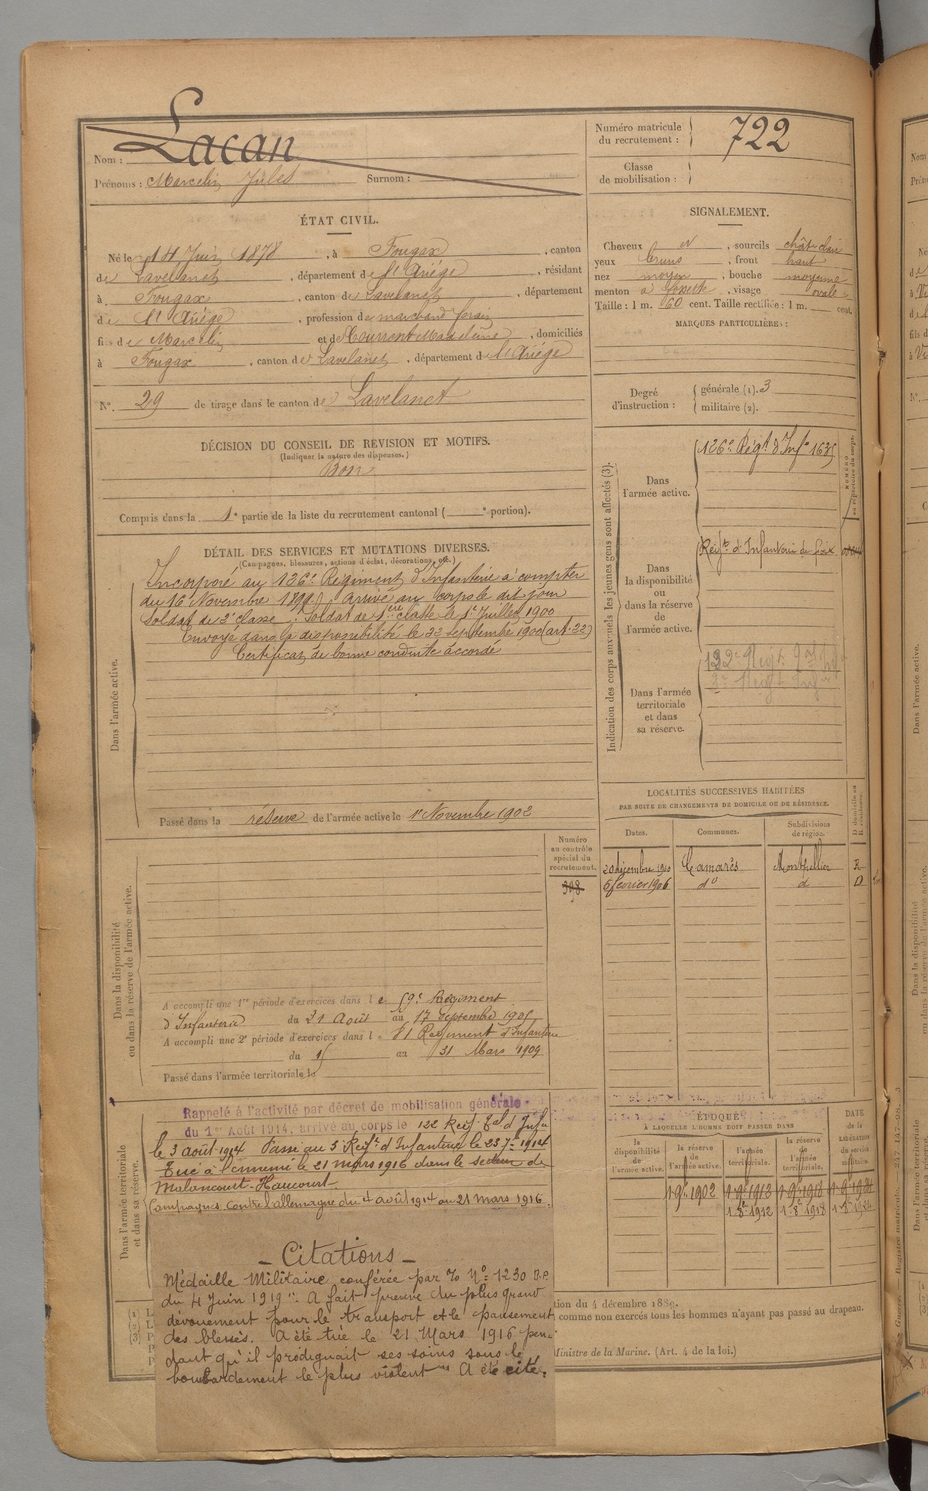 Nom : Lacan
Prénoms : Marcelin Jules Surnom :
Numéro matricule du recrutement : 722
Classe de mobilisation :
ÉTAT CIVIL.
Né le 14 Juin 1878, à Fougax, canton
de Lavelanet, département de l'Ariége, résidant
à Fougax, canton de Lavelanet, département
de l'Ariége, profession de marchand forain
fils de Marcelin et de Madeleine, domiciliés
à Fougax, canton de Lavelanet, département de l'Ariége
N° 29 de tirage dans le canton de Lavelanet
SIGNALEMENT.
Cheveux , sourcils chât clair
yeux bruns, front haut
nez moyen, bouche moyenne
menton à fossette, visage ovale
Taille : 1 m. 60 cent. Taille rectifiée : 1 m. cent.
MARQUES PARTICULIÈRES :
Degré d'instruction : générale (1). 3
militaire (2).
DÉCISION DU CONSEIL DE REVISION ET MOTIFS.
(Indiquer la nature des dispenses.)
Bon
Compris dans la 1e partie de la liste du recrutement cantonal ( e portion).
DÉTAIL DES SERVICES ET MUTATIONS DIVERSES.
(Campagnes, blessures, actions d'éclat, décorations, etc.)
Dans l'armée active.
Incorporé au 126e Régiment d'Infanterie à compter
du 16 Novembre 1899. Arrivé au corps le dit jour
Soldat de 2e classe. Soldat de 1ère classe le 1er Juillet 1900
Envoyé dans la disponibilité le 22 Septembre 1900 (art. 22)
Certificat de bonne conduite accordé
Passé dans la réserve de l'armée active le 1er Novembre 1902
Indication des corps auxquels les jeunes gens sont affectés (3).
Dans l'armée active. 126e Régt d'Infie
Dans la disponibilité ou dans la réserve de l'armée active. Régt d'Infanterie de Foix
Dans l'armée territoriale et dans sa réserve. 122e Régt
LOCALITÉS SUCCESSIVES HABITÉES
PAR SUITE DE CHANGEMENTS DE DOMICILE OU DE RÉSIDENCE.
Dates. Communes. Subdivisions de région.
Camarès Montpellier R
6 février 1906 do d D
Numéro au contrôle spécial du recrutement.
398
Dans la disponibilité ou dans la réserve de l'armée active.
A accompli une 1re période d'exercices dans le Régiment
d'Infanterie du 21 Août au 17 Septembre
A accompli une 2e période d'exercices dans l 81 Régiment d'Infanterie
du 15 au 31 Mars 1909
Passé dans l'armée territoriale le
Dans l'armée territoriale et dans sa réserve.
Rappelé à l'activité par décret de mobilisation générale
du 1er Août 1914, arrivé au corps le 122 Régt Tal d'Infie
le 3 août 1914 Passé au 3 Régt d'Infanterie le
Tué à l'ennemi le 21 mars 1916 dans le secteur de
Malancourt-Haucourt
Campagnes contre l'allemagne du 4 août 1914 au 21 mars 1916.
ÉPOQUE
À LAQUELLE L'HOMME DOIT PASSER DANS
la disponibilité de l'armée active. la réserve de l'armée active. l'armée territoriale. la réserve de l'armée territoriale.
DATE DE LA LIBÉRATION du service militaire.
1 9bre 1902 1 9bre 1912 1 9bre 1918
1 8bre 1912 1 8bre 1918
Citations
Médaille Militaire conférée par No 1230 D.P.
du 4 Juin 1919 "A fait preuve du plus grand
dévouement pour le transport et le pansement
des blessés. A été tué le 21 Mars 1916 pen-
dant qu'il prodiguait ses soins sous le
bombardement le plus violent" A été cité.
tion du 4 décembre 1889.
comme non exercés tous les hommes n'ayant pas passé au drapeau.
Ministre de la Marine. (Art. 4 de la loi.)